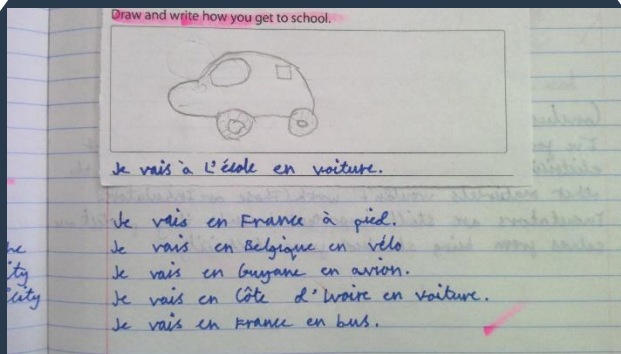 Draw and write how you get to school.
Je vais à L'école en voiture.
Je vais en France à pied.
Je vais en Belgique en vélo
Je vais en Guyane en avion.
Je vais en Côte d'Ivoire en voiture.
Je vais en France en bus.